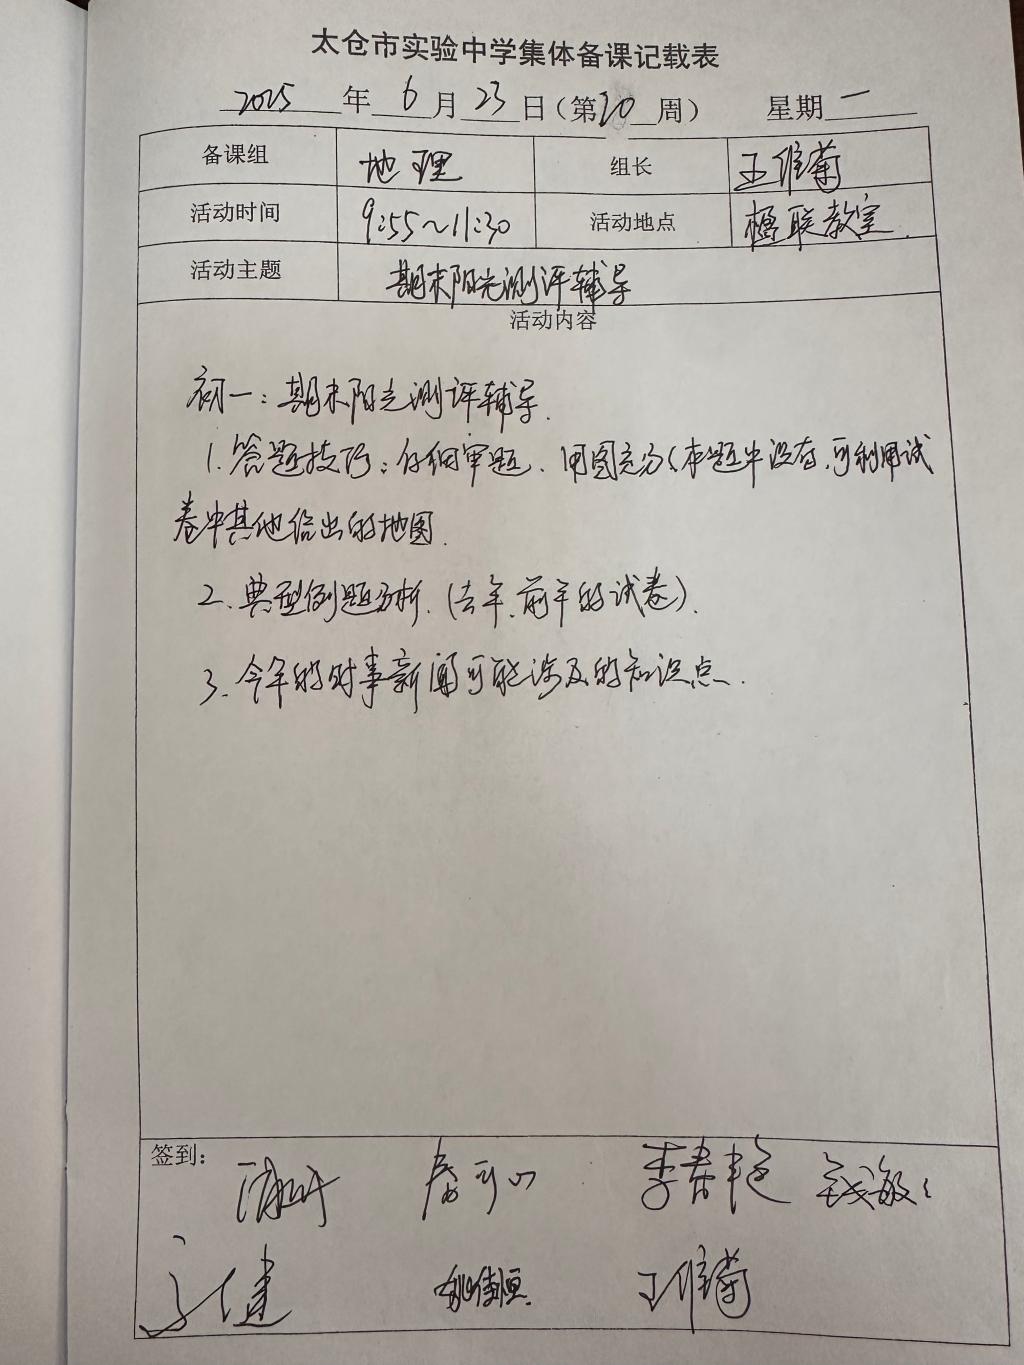 太仓市实验中学集体备课记载表
2025年6月23日（第20周） 星期一
备课组 地理 组长 王维菊
活动时间 9:55～11:30 活动地点 楹联教室.
活动主题 期末阳光测评辅导
活动内容
初一：期末阳光测评辅导.
1. 答题技巧：仔细审题、用图充分（本题中没有，可利用试
卷中其他给出的地图.
2. 典型例题分析.（去年、前年的试卷）.
3. 今年的时事新闻可能涉及的知识点.
签到：
李春艳 钱敏
王维菊